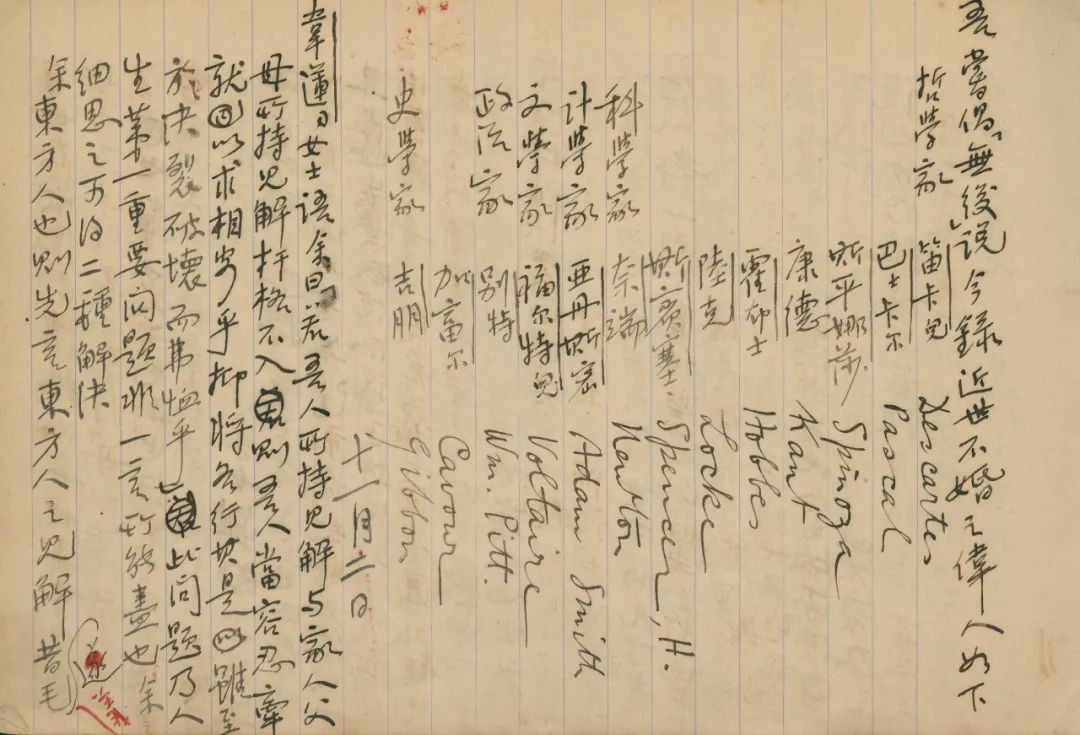 吾嘗倡「無後」說今錄近世不婚之偉人如下
哲學家 笛卡兒 Descartes
巴士卡尔 Pascal
斯平娜莎 Spinoza
康德 Kant
霍布士 Hobbes
陸克 Locke
斯賓塞 Spencer, H.
科學家 奈端 Newton
計學家 亚丹斯密 Adam Smith
文學家 福尔特兒 Voltaire
政治家 别特 Wm. Pitt.
加富尔 Cavour
史學家 吉朋 Gibbon
十一月二日
韋蓮司女士語余曰若吾人所持見解与家人父
母所持見解扞格不入則吾人當容忍牽
就以求相安乎抑將各行其是雖至
於决裂破壞而弗恤乎此问題乃人
生第一重要问題非一言所能盡也余
細思之可得二種解决
余東方人也則先言東方人之見解昔毛